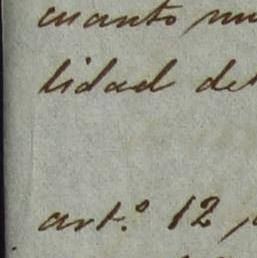 cuanto
lidad de
art.º 12